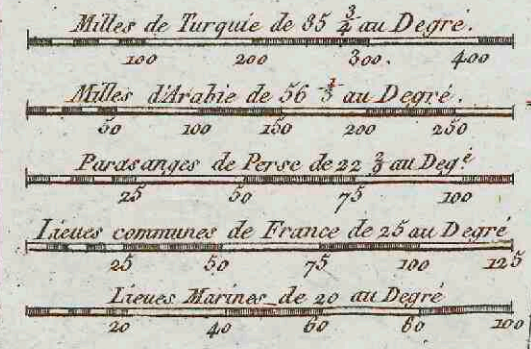 Milles de Turquie de 85 3/4 au Degré.
100 200 300. 400
Milles d'Arabie de 56 1/3 au Degré.
50 100 150 200 250
Parasanges de Perse de 22 2/9 au Degé
25 50 75 100
Lieues communes de France de 25 au Degré
25 50 75 100 125
Lieues Marines de 20 au Degré
20 40 60 80 100